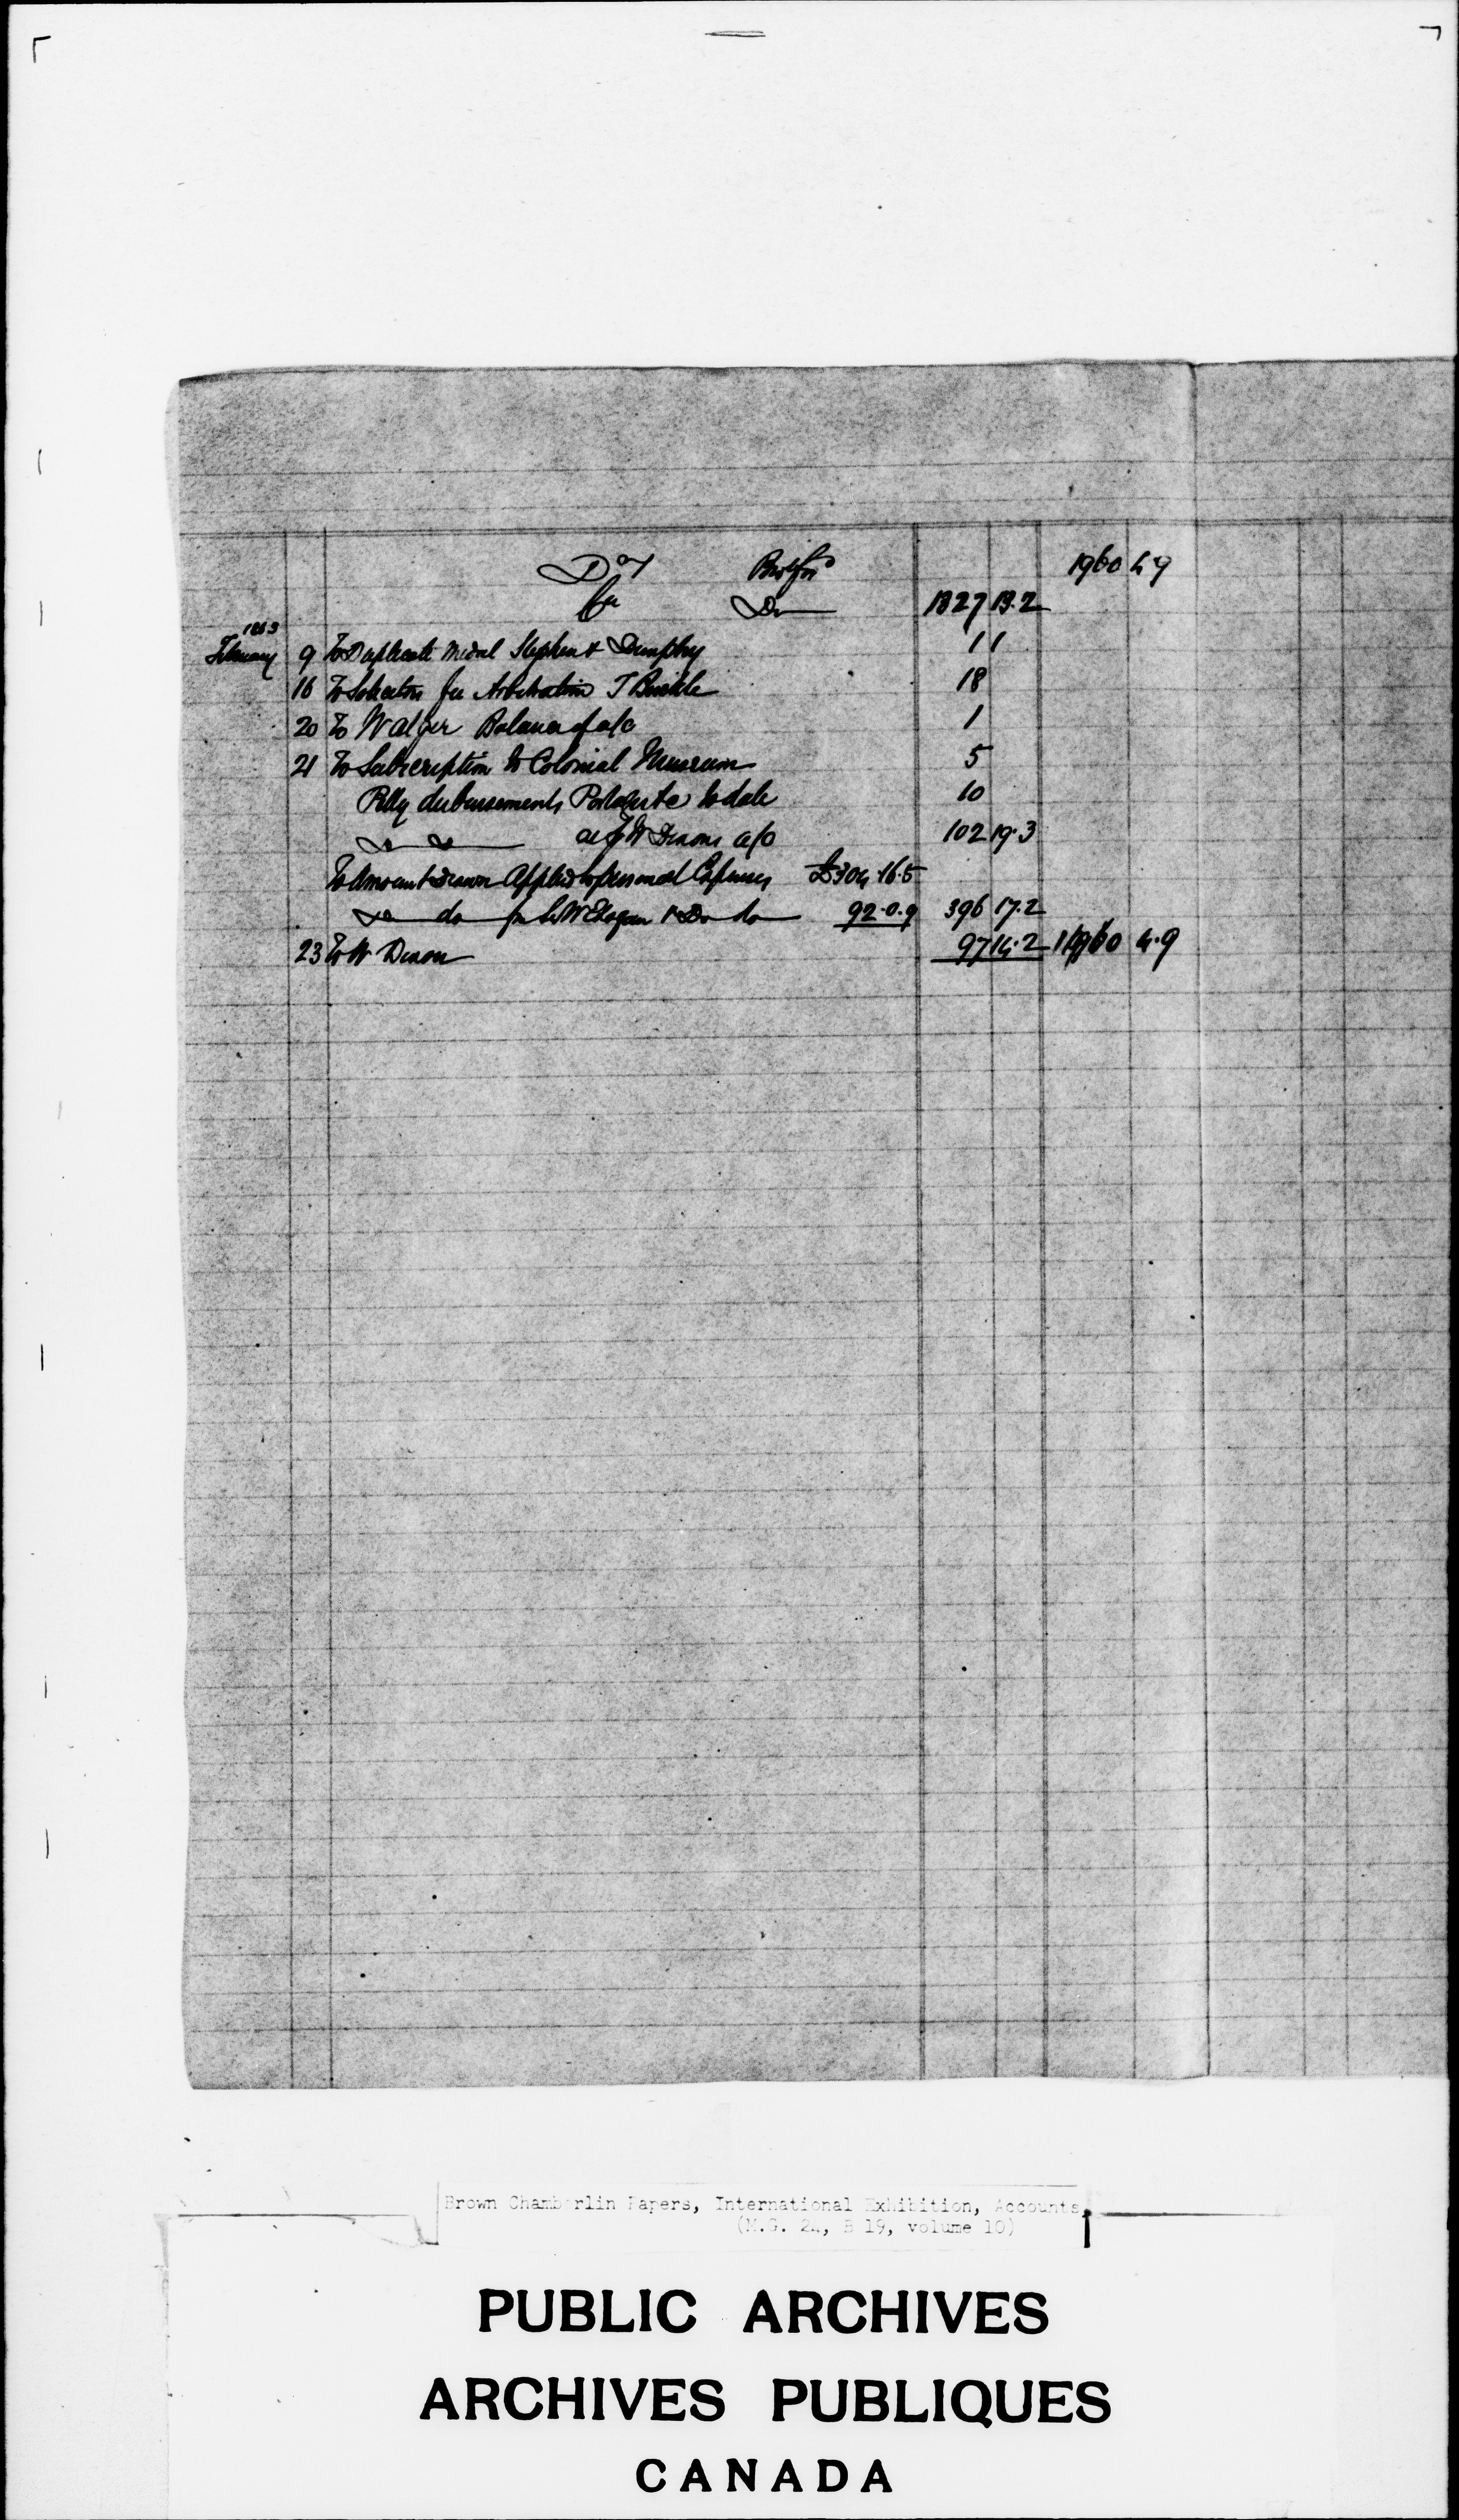 Dr Brotfor^d 1960 4 9
Cr Do 1327 13.2
1863
February 9 To Duplicate medal Stephen & Dunphy 1 1
16 To Solicitors fee Arbitration T 18
20 To W Alger Balance of a/c 1
21 To Subscription to Colonial Museum 5
Petty disbursements to date 10
Do Do W Dixons a/c 102 19.3
To Amount drawn Applied to personal Expenses £304.16.5
Do do for W E Logan Do do 92.0.9 396 17.2
23 To W Dixon 97 14.2 1960 4.9
Brown Chamberlin Papers, International Exhibition, Accounts,
(M.G. 24, B 19, volume 10)
PUBLIC ARCHIVES
ARCHIVES PUBLIQUES
CANADA